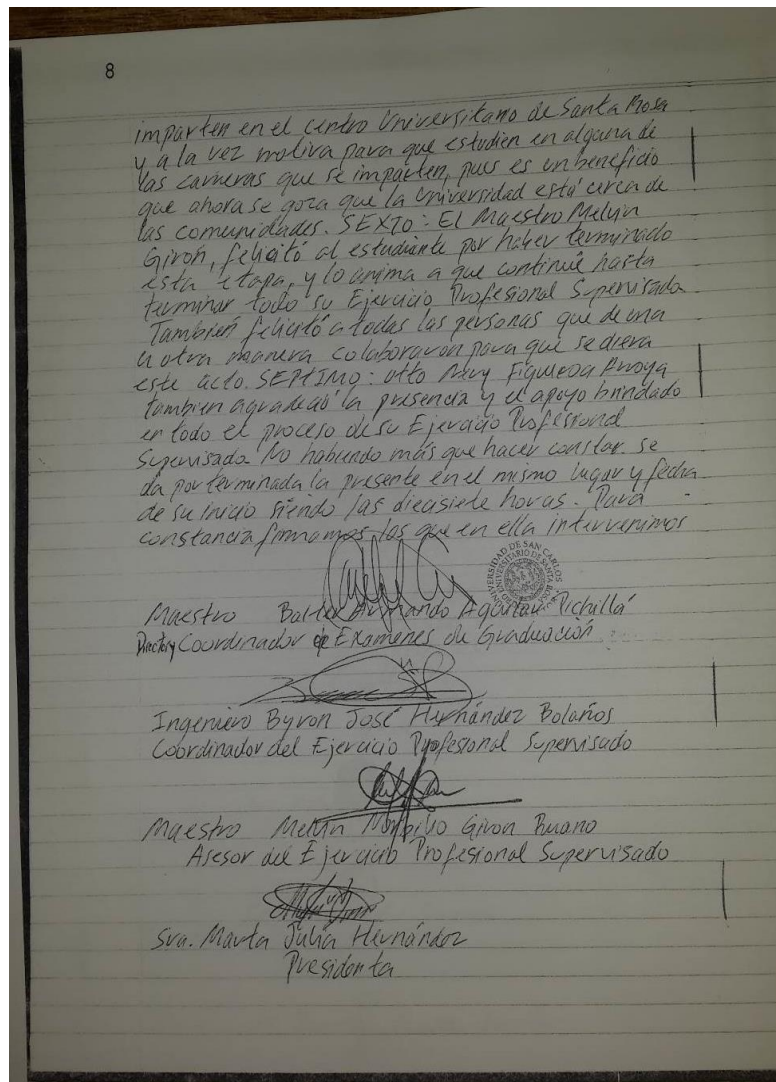 8
imparten en el centro Universitario de Santa Rosa
y a la vez motiva para que estudien en alguna de
las carreras que se imparten, pues es un beneficio
que ahora se goza que la Universidad está cerca de
las comunidades. SEXTO: El Maestro Melvin
Girón, felicitó al estudiante por haber terminado
esta etapa, y lo anima a que continúe hasta
terminar todo su Ejercicio Profesional Supervisado.
También felicitó a todas las personas que de una
u otra manera colaboraron para que se diera
este acto. SEPTIMO: Otto Figueroa
tambien agradeció la presencia y el apoyo brindado
en todo el proceso de su Ejercicio Profesional
Supervisado. No habiendo más que hacer constar. se
da por terminada la presente en el mismo lugar y fecha
de su inicio siendo las diecisiete horas. Para
constancia firmamos los que en ella intervenimos
UNIVERSIDAD DE SAN CARLOS
UNIVERSITARIO DE SANTA ROSA
Maestro Armando Aguilar Pichillá
Director y Coordinador de Examenes de Graduación
Ingeniero Byron José Hernández Bolaños
Coordinador del Ejercicio Profesional Supervisado
Maestro Melvin Giron Ruano
Asesor del Ejercicio Profesional Supervisado
Sra. Marta Julia Hernández
Presidenta